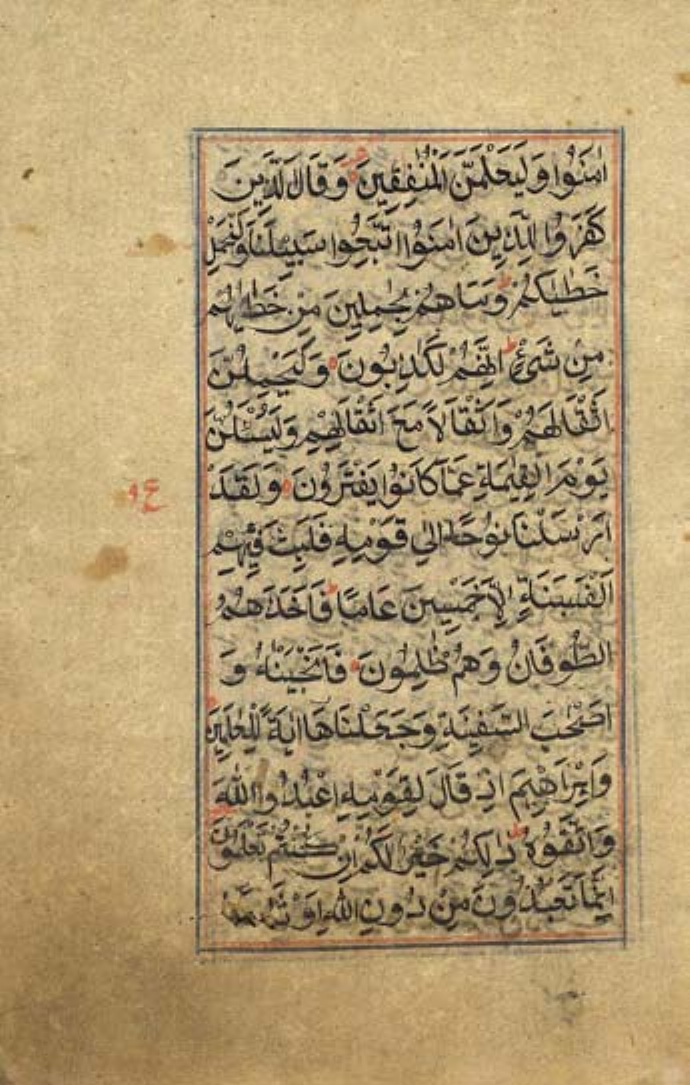 اٰمَنُوْا وَلَيَعْلَمَنَّ الْمُنٰفِقِيْنَ وَقَالَ الَّذِيْنَ
كَفَرُوْا لِلَّذِيْنَ اٰمَنُوا اتَّبِعُوْا سَبِيْلَنَا وَلْنَحْمِلْ
خَطٰيٰكُمْ وَمَا هُمْ بِحٰمِلِيْنَ مِنْ خَطٰيٰهُمْ
مِنْ شَیْءٍ اِنَّهُمْ لَكٰذِبُوْنَ وَلَيَحْمِلُنَّ
اَثْقَالَهُمْ وَاَثْقَالًا مَعَ اَثْقَالِهِمْ وَلَيُسْئَلُنَّ
يَوْمَ الْقِيٰمَةِ عَمَّا كَانُوْا يَفْتَرُوْنَ وَلَقَدْ
ع
اَرْسَلْنَا نُوْحًا اِلٰى قَوْمِهٖ فَلَبِثَ فِيْهِمْ
اَلْفَ سَنَةٍ اِلَّا خَمْسِيْنَ عَامًا فَاَخَذَهُمُ
الطُّوْفَانُ وَهُمْ ظٰلِمُوْنَ فَاَنْجَيْنٰهُ وَ
اَصْحٰبَ السَّفِيْنَةِ وَجَعَلْنَاهَا اٰيَةً لِّلْعٰلَمِيْنَ
وَاِبْرَاهِيْمَ اِذْ قَالَ لِقَوْمِهِ اعْبُدُوا اللّٰهَ
وَاتَّقُوْهُ ذٰلِكُمْ خَيْرٌ لَكُمْ اِنْ كُنْتُمْ تَعْلَمُوْنَ
اِنَّمَا تَعْبُدُوْنَ مِنْ دُوْنِ اللّٰهِ اَوْثَانًا